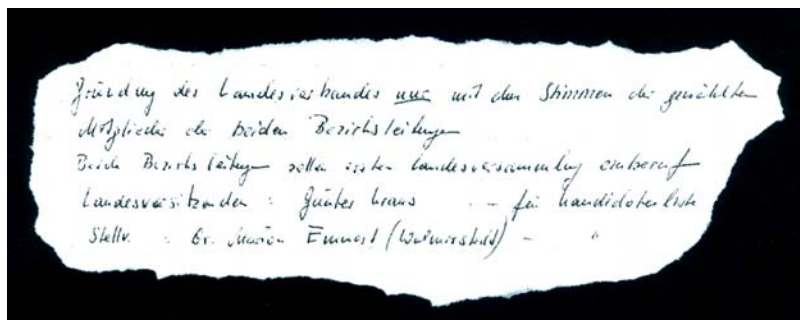 Gründung des Landesverbandes nur mit den Stimmen der gewählten
Mitglieder der beiden Bezirksleitungen
Beide Bezirksleitungen sollen ersten Landesversammlung einberuf
Landesvorsitzenden : Günter Kraus - - für Kandidatenliste
Stellv. : Dr. Marion (Wolmirstedt) - "